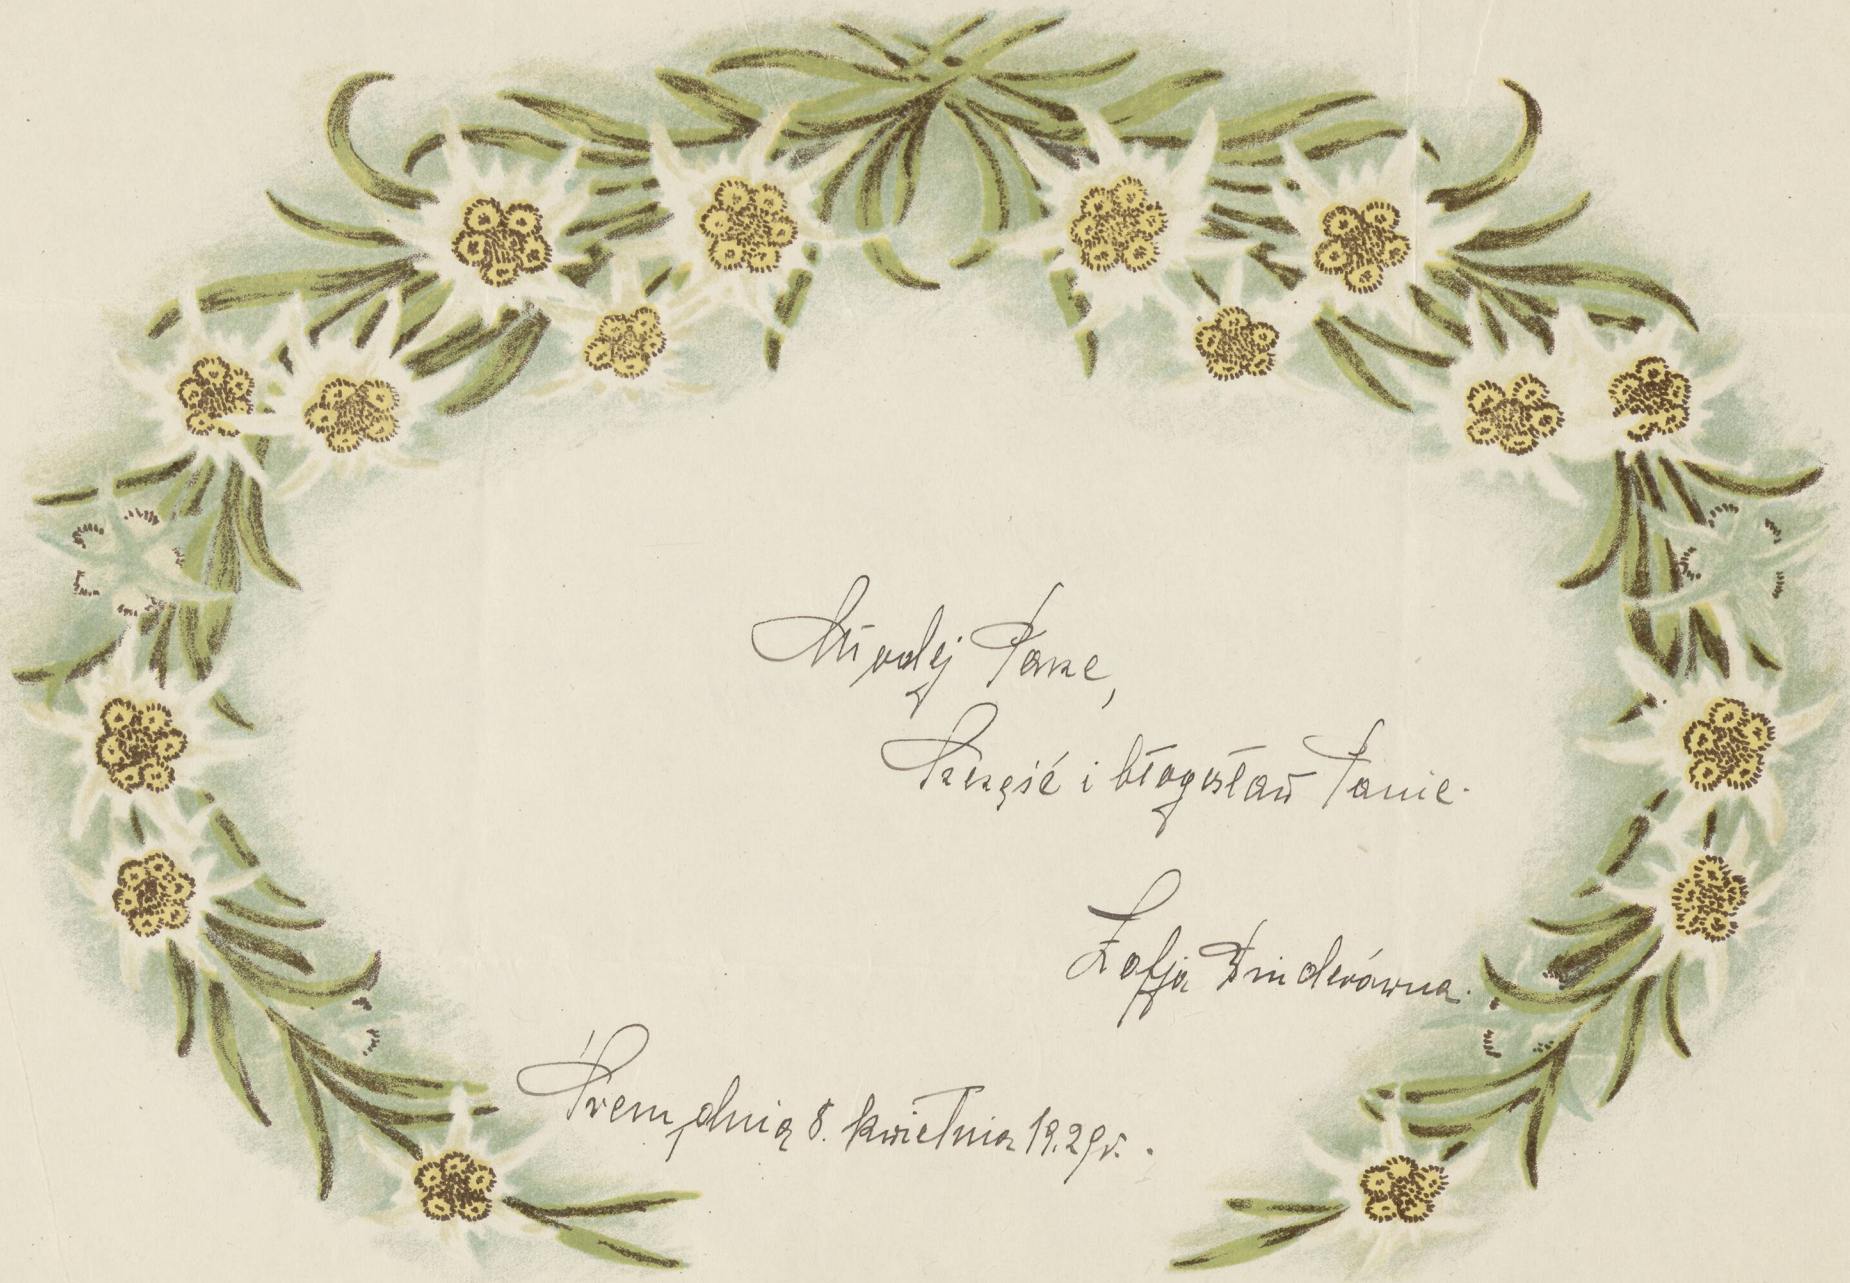 Młodej Parze,
Szczęść i błogosław Panie.
Zofja Sniderówna.
Śrem, dnia 8. kwietnia 1929r.